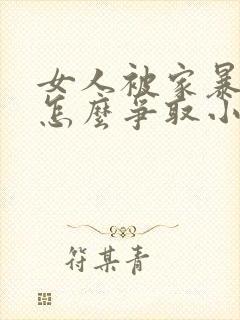 女人被家暴
怎麼爭取小
符某青